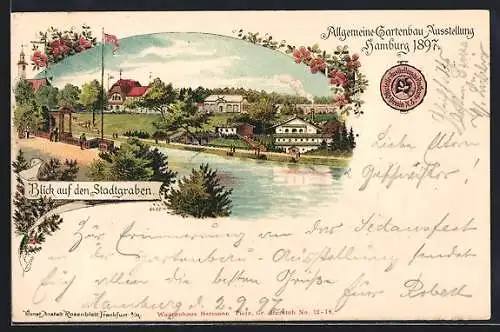 Allgemeine Gartenbau-Ausstellung
Hamburg 1897.
Liebe Eltern
u Geschwister
Blick auf den Stadtgraben.
Zur Erinnerung von der Sedansfest
in der Gartenbau-Ausstellung sendet
Euch allen die besten Grüße Eur Robert
Hamburg d. 2.9.97
Kunst Anstalt Rosenblatt Frankfurt a/M.
Warenhaus Hermann Tietz, Gr. No. 12-18.